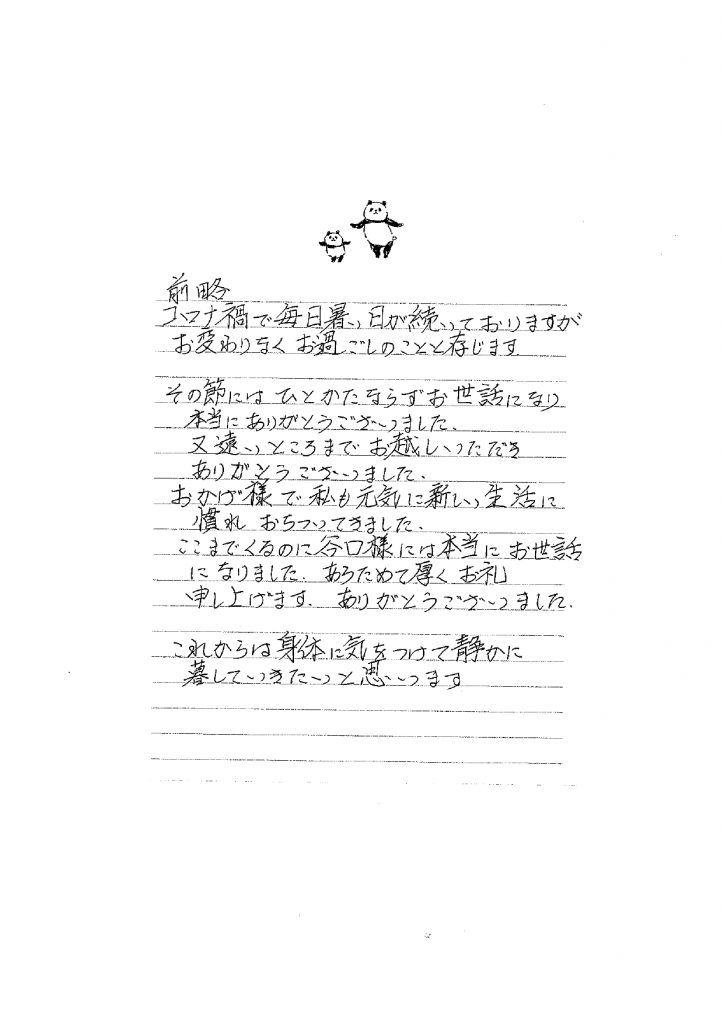 前略
コロナ禍で毎日暑い日が続いておりますが
お変わりなくお過ごしのことと存じます
その節にはひとかたならずお世話になり
本当にありがとうございました.
又遠いところまでお越しいただき
ありがとうございました.
おかげ様で私も元気に新しい生活に
慣れおちついてきました.
ここまでくるのに谷口様には本当にお世話
になりました.あらためて厚くお礼
申し上げます.ありがとうございました.
これからは身体に気をつけて静かに
暮していきたいと思います